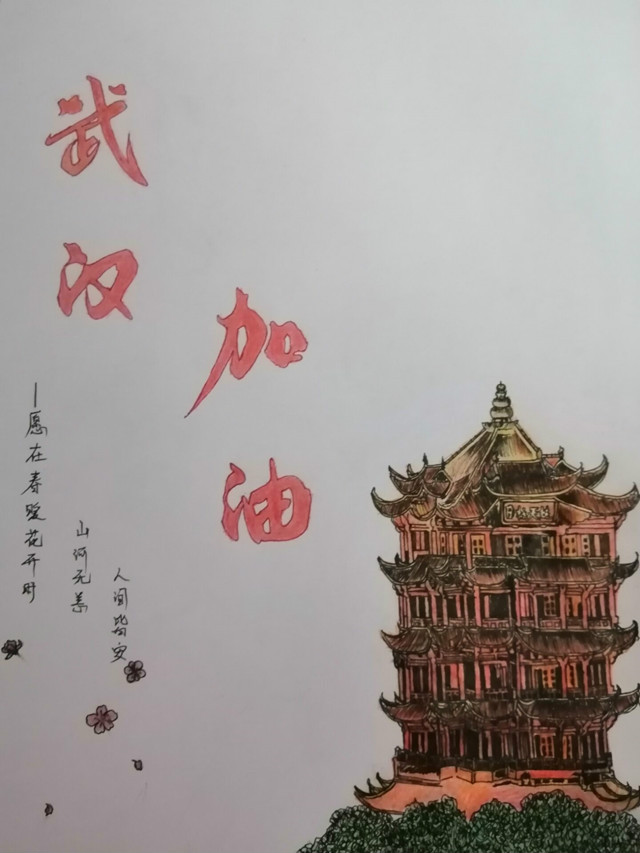 武汉
加油
—愿在春暖花开时
山河无恙
人间皆安